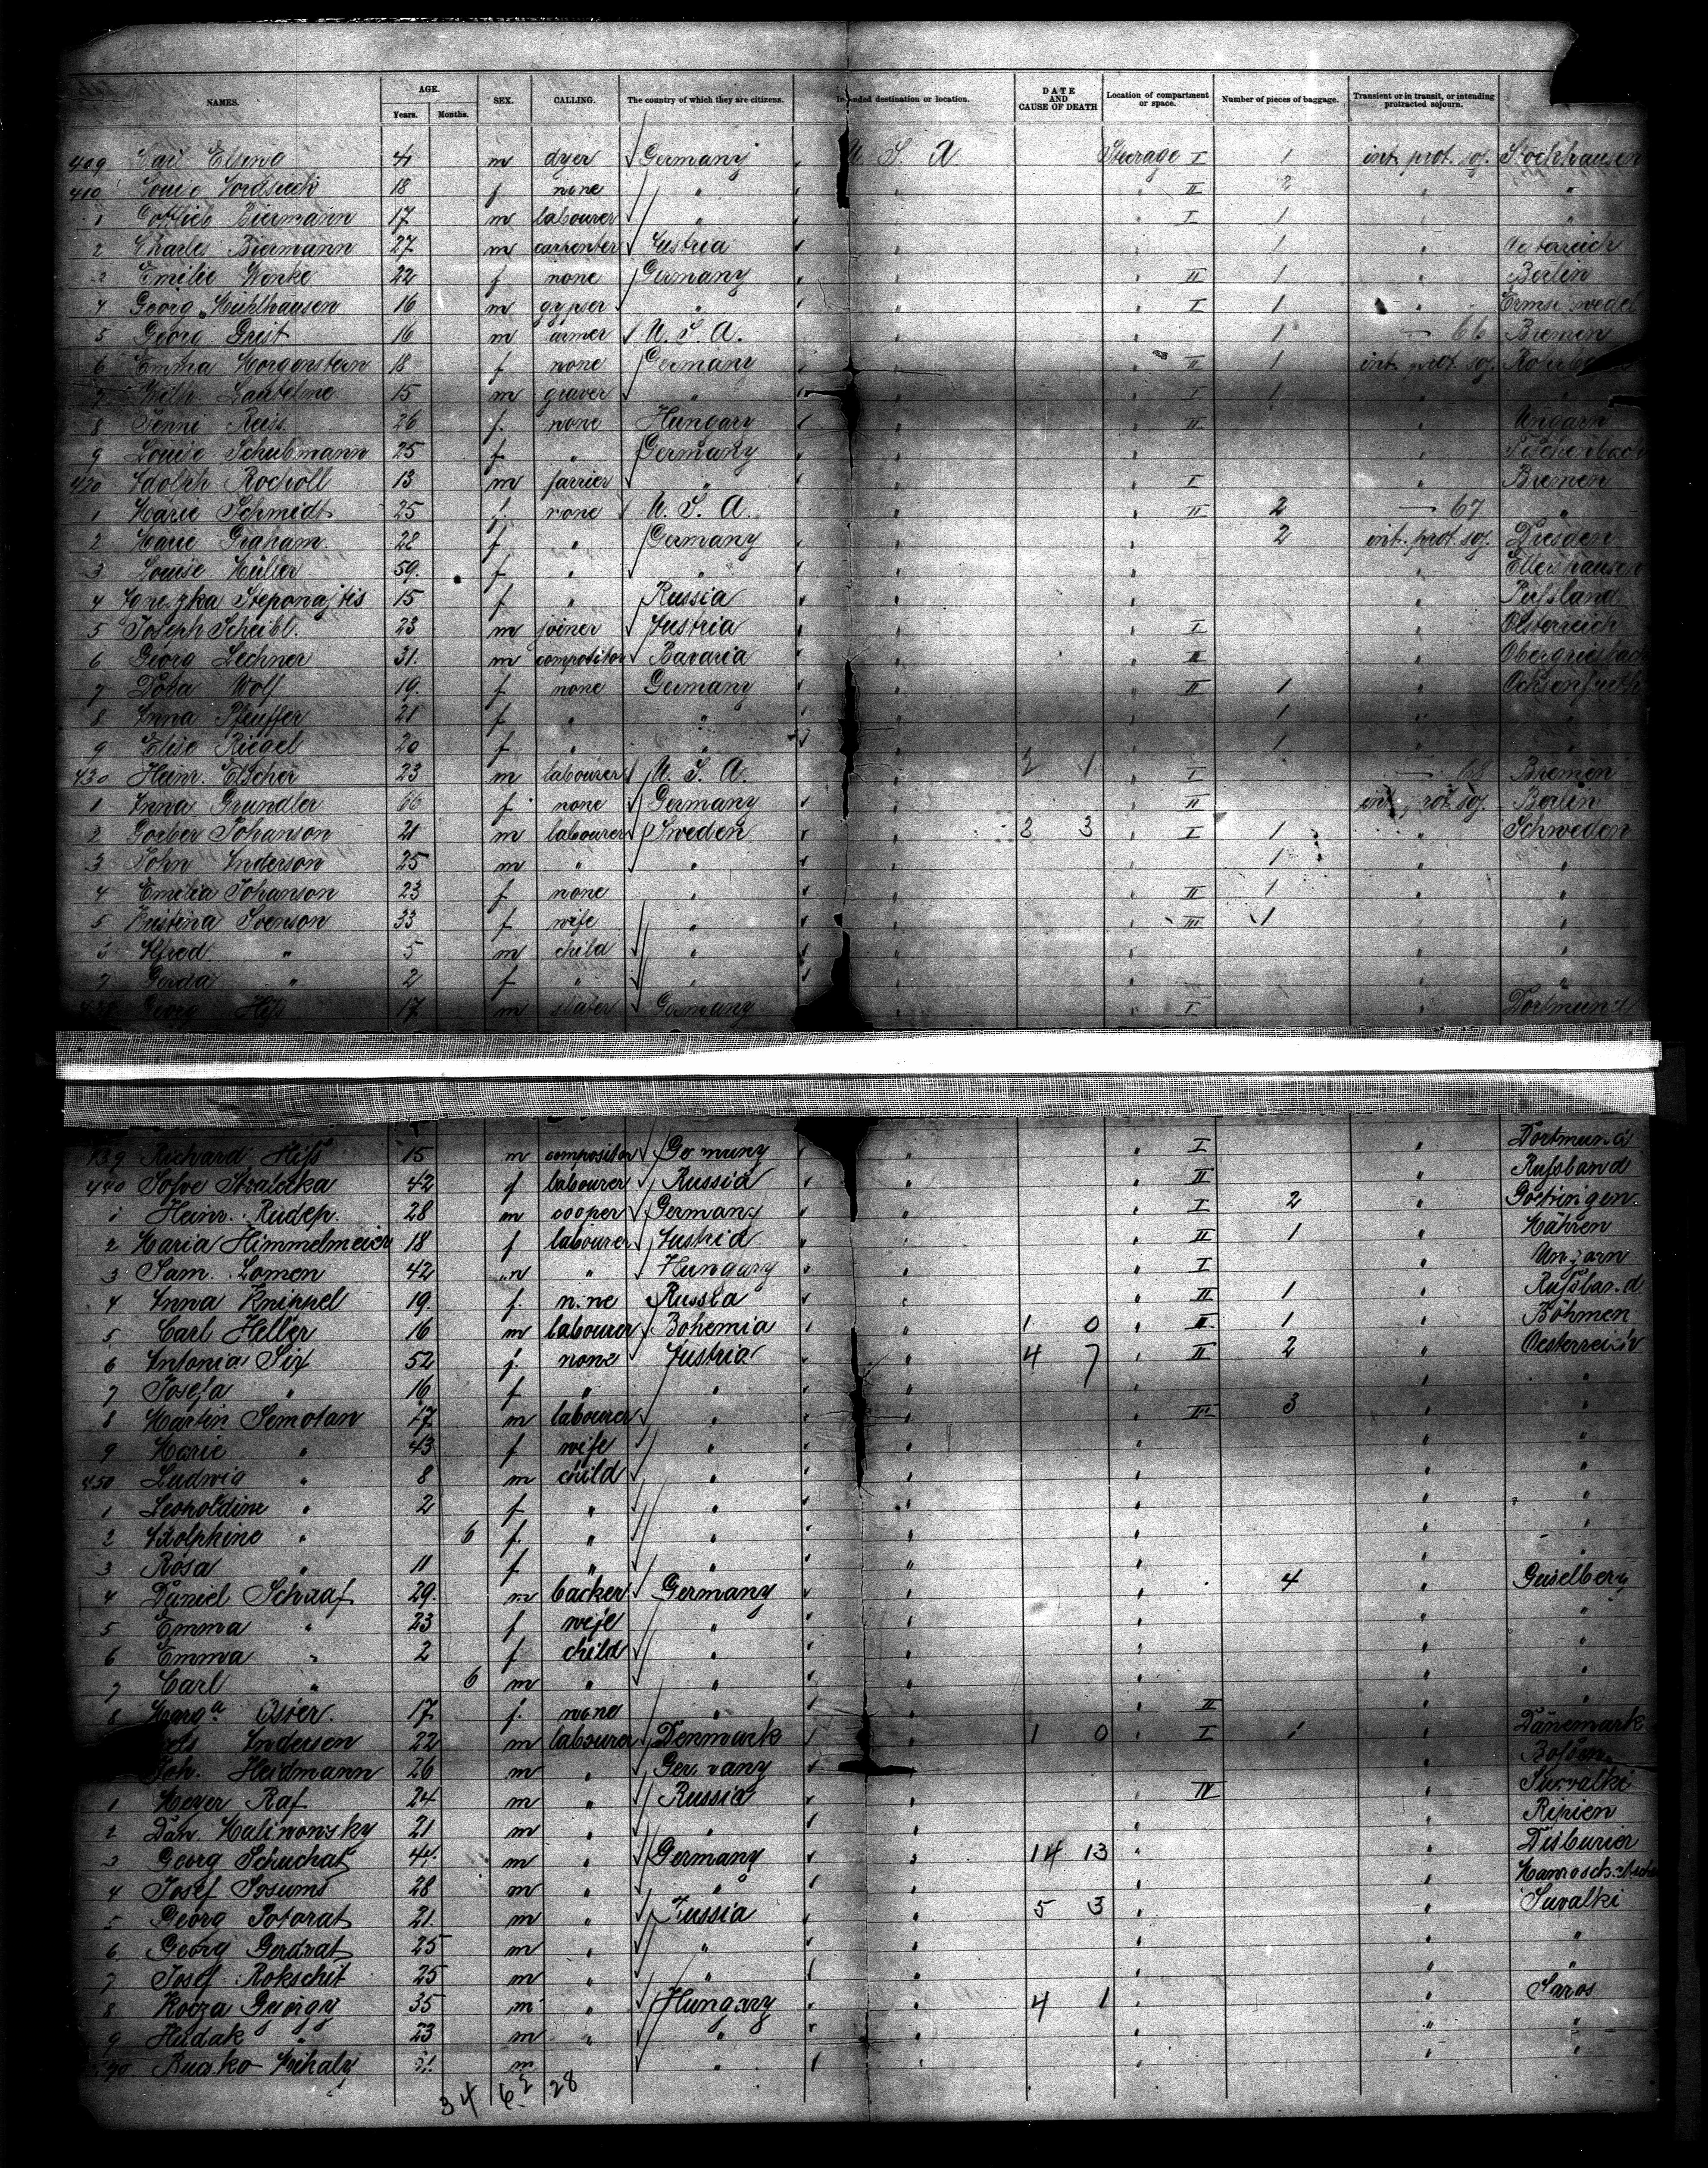 NAMES. AGE. Years. Months. SEX. CALLING. The country of which they are citizens. Intended destination or location. DATE AND CAUSE OF DEATH Location of compartment or space. Number of pieces of baggage. Transient or in transit, or intending protracted sojourn.
409 Carl m dyer Germany U. S. A Steerage I 1 int. prot. soj. Stockhausen
410 Louise 18 f none " " " II 2 " "
1 Gottlieb Biermann 17 m labourer " " " I 1 " "
2 Charles Biermann 27 m carpenter Austria " " 1 " Oesterreich
3 Emilie Wenke 22 f none Germany " " II 1 " Berlin
4 Georg Mühlhausen 16 m gypser " " " I 1 "
5 Georg Grist 16 m armer U. S. A. " " 1 — 66 Bremen
6 Emma Morgenstern 18 f none Germany " " II 1 int. prot. soj.
7 Wilh. 15 m graver " " " I 1 "
8 Jenni Reiss 26 f. none Hungary " " II " Ungarn
9 Louise Schubmann 25 f " Germany " " "
420 Adolph Rocholl 13 m farrier " " " I " Bremen
1 Marie Schmidt 25 f. none U. S. A. " " II 2 — 67 "
2 Marie Graham. 28 f " Germany " " 2 int. prot. soj. Dresden
3 Louise Müller 59. f " " " " " Ellershausen
4 Agneszka Steponajtis 15 f " Russia " " " Rußland
5 Joseph Scheibl. 23 m joiner Austria " " I " Oesterreich
6 Georg Lechner 31. m compositor Bavaria " " II "
7 Dora Wolf 19. f none Germany " " II 1 " Ochsenfurth
8 Anna Pfeuffer 21 f " " " " 1 " "
9 Elise Riegel 20 f " " " " 1 " "
430 Heinr. 23 m labourer U. S. A. " 2 1 " I — 68 Bremen
1 Anna Grundler 66 f. none Germany " " II int. prot. soj. Berlin
2 Johanson 21 m labourer Sweden " 3 3 " I 1 " Schweden
3 John Anderson 25 m " " " " 1 " "
4 Emilia Johanson 23 f none " " " II 1 " "
5 Kristina Svenson 33 f wife " " " III 1 " "
6 Alfred " 5 m child " " " " "
7 Gerda " 2 f " " " " " "
438 Georg Hiß 17 m slater Germany " " I " Dortmund
439 Richard Hiß 15 m compositor Germany " " I " Dortmund
440 42 f labourer Russia " " II " Rußland
1 Heinr. 28 m cooper Germany " " I 2 " Goettingen.
2 Maria Himmelmeier 18 f labourer Austria " " II 1 " Mähren
3 Sam. Lomen 42 m " Hungary " " I " Ungarn
4 Anna Knippel 19. f. none Russia " " II 1 " Rußland
5 Carl Heller 16 m labourer Bohemia " 1 0 " II 1 " Böhmen
6 Antonia Six 52 f. none Austria " 4 7 " II 2 " Oesterreich
7 Josefa " 16 f " " " " " "
8 Martin Semotan 47 m labourer " " " III 3 " "
9 Marie " 43 f wife " " " " "
450 Ludwig " 8 m child " " " " "
1 Leopoldine " 2 f " " " " " "
2 Adolphine " 6 f. " " " " " "
3 Rosa " 11 f " " " " " "
4 Daniel Schaaf 29. m backer Germany " " 4 " Giselberg
5 Emma " 23 f wife " " " " "
6 Emma " 2 f child " " " " "
7 Carl " 6 m " " " " " "
8 Marg.a Osier. 17 f. none " " " II " "
Andersen 22 m labourer Denmark " 1 0 " I 1 " Dänemark
Joh. Heidmann 26 m " Germany " " "
1 Meyer Raf 24 m " Russia " " IV " Suwalki
2 Dan. Malinowsky 21 m " " " " " Ripien
3 Georg Schuchat 44 m " Germany " 14 13 " "
4 Josef 28 m " " " " "
5 Georg Potorat 21. m " Russia " 5 3 " " Suvalki
6 Georg Gerdvat 25 m " " " " " "
7 Josef Rokschit 25 m " " " " " "
8 Kocza György 35 m " Hungary " 4 1 " " Saros
9 Hudak " 23 m " " " " " "
470 Mihaly m " " " " "
34 62 28